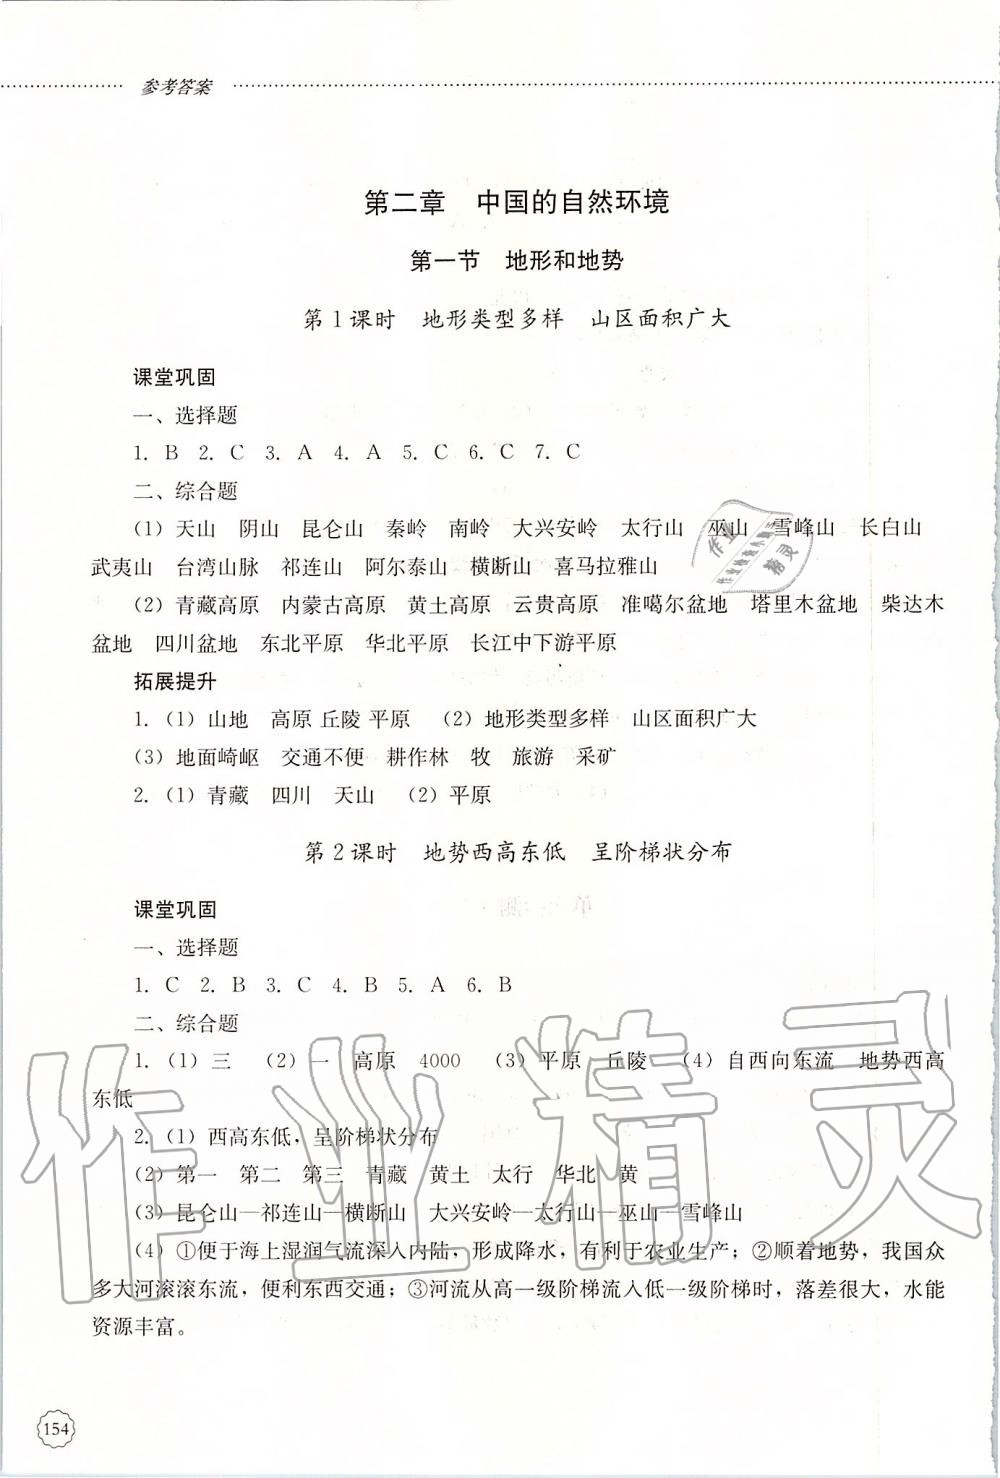 参考答案
第二章 中国的自然环境
第一节 地形和地势
第1课时 地形类型多样 山区面积广大
课堂巩固
一、选择题
1. B 2. C 3. A 4. A 5. C 6. C 7. C
二、综合题
(1) 天山 阴山 昆仑山 秦岭 南岭 大兴安岭 太行山 巫山 雪峰山 长白山
武夷山 台湾山脉 祁连山 阿尔泰山 横断山 喜马拉雅山
(2) 青藏高原 内蒙古高原 黄土高原 云贵高原 准噶尔盆地 塔里木盆地 柴达木
盆地 四川盆地 东北平原 华北平原 长江中下游平原
拓展提升
1. (1) 山地 高原 丘陵 平原 (2) 地形类型多样 山区面积广大
(3) 地面崎岖 交通不便 耕作林 牧 旅游 采矿
2. (1) 青藏 四川 天山 (2) 平原
第2课时 地势西高东低 呈阶梯状分布
课堂巩固
一、选择题
1. C 2. B 3. C 4. B 5. A 6. B
二、综合题
1. (1) 三 (2) 一 高原 4000 (3) 平原 丘陵 (4) 自西向东流 地势西高
东低
2. (1) 西高东低，呈阶梯状分布
(2) 第一 第二 第三 青藏 黄土 太行 华北 黄
(3) 昆仑山—祁连山—横断山 大兴安岭—太行山—巫山—雪峰山
(4) ①便于海上湿润气流深入内陆，形成降水，有利于农业生产；②顺着地势，我国众
多大河滚滚东流，便利东西交通；③河流从高一级阶梯流入低一级阶梯时，落差很大，水能
资源丰富。
154
作业精灵
作业
精灵